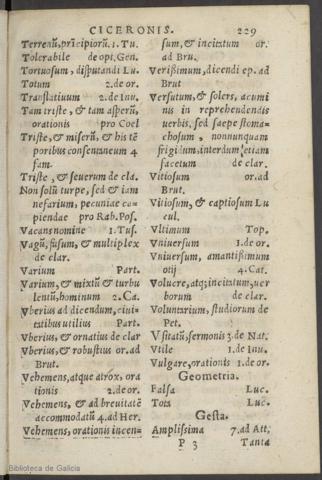 CICERONIS. 229
Terrenũ, prĩcipiorũ. 1. Tu.
Tolerabile de opt. Gen.
Tortuosum, disputandi Lu.
Totum 2. de or.
Translatiuum 2. de Inu.
Tam triste, & tam asperũ,
orationis pro Coel
Triste, & miserũ, & his tẽ
poribus consentaneum 4
fam.
Triste, & seuerum de cla.
Non solũ turpe, sed & iam
nefarium, pecuniæ ca-
piendae pro Rab. Pos.
Vacans nomine 1. Tus.
Vagũ, fusum, & multiplex
de clar.
Varium Part.
Varium, & mixtũ & turbu
lentũ, hominum 2. Ca.
Vberius ad dicendum, ciui-
tatibus utilius Part.
Vberius, & ornatius de clar
Vberius, & robustius or. ad
Brut.
Vehemens, atque atrox, ora
tionis 2. de or.
Vehemens, & ad breuitatẽ
accommodatũ 4. ad Her.
Vehemens, orationis incen-
sum, & incitatum or.
ad Bru.
Verißimum, dicendi ep. ad
Brut
Versutum, & solers, acumi
nis in reprehendendis
uerbis, sed saepe stoma-
chosum, nonnunquam
frigidum, interdum etiam
facetum de clar.
Vitiosum or. ad
Brut.
Vitiosum, & captiosum Lu
cul.
Vltimum Top.
Vniuersum 1. de or.
Vniuersum, amantißimum
otij 4. Cat.
Volucre, atq; incitatum, uer
borum de clar.
Voluntarium, studiorum de
Pet.
Vsitatũ, sermonis 3. de Nat.
Vtile 1. de Inu.
Vulgare, orationis 1. de or.
Geometria.
Falsa Luc.
Tota Luc.
Gesta.
Amplißima 7. ad Att.
P 3 Tanta
Biblioteca de Galicia